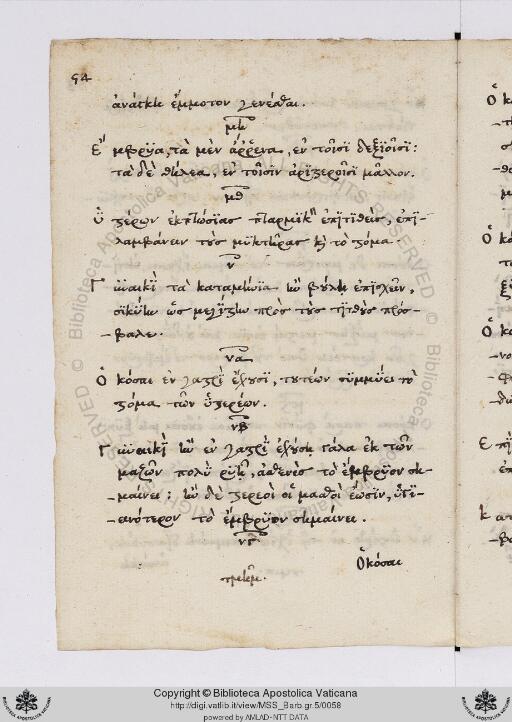 54
ἀνάγκη ἔμμοτον γενέσθαι.
μη
Ἔμβρυα, τὰ μὲν ἄρρενα, ἐν τοῖσι δεξιοῖσι:
τὰ δὲ θήλεα, ἐν τοῖσιν ἀριστεροῖσι μᾶλλον.
μθ
Ὑστέρων ἐκπτώσιας πταρμικὸν ἐπιτιθεὶς, ἐπι-
λαμβάνειν τοὺς μυκτῆρας καὶ τὸ στόμα.
ν
Γυναικὶ τὰ καταμήνια ἢν βούλῃ ἐπισχεῖν,
σικύην ὡς μεγίστην πρὸς τοὺς τιτθοὺς πρόσ-
-βαλε.
να
Ὁκόσαι ἐν γαστρὶ ἔχουσι, τουτέων συμμύει τὸ
στόμα τῶν ὑστερέων.
νβ
Γυναικὶ ἢν ἐν γαστρὶ ἐχούσῃ γάλα ἐκ τῶν
μαζῶν πολὺ ῥυῇ, ἀσθενὲς τὸ ἔμβρυον ση-
μαίνει: ἢν δὲ στερεοὶ οἱ μασθοὶ ἔωσιν, ὑγι-
-εινότερον τὸ ἔμβρυον σημαίνει.
νγ
Ὁκόσαι
Copyright © Biblioteca Apostolica Vaticana
http://digi.vatlib.it/view/MSS_Barb.gr.5/0058
powered by AMLAD-NTT DATA